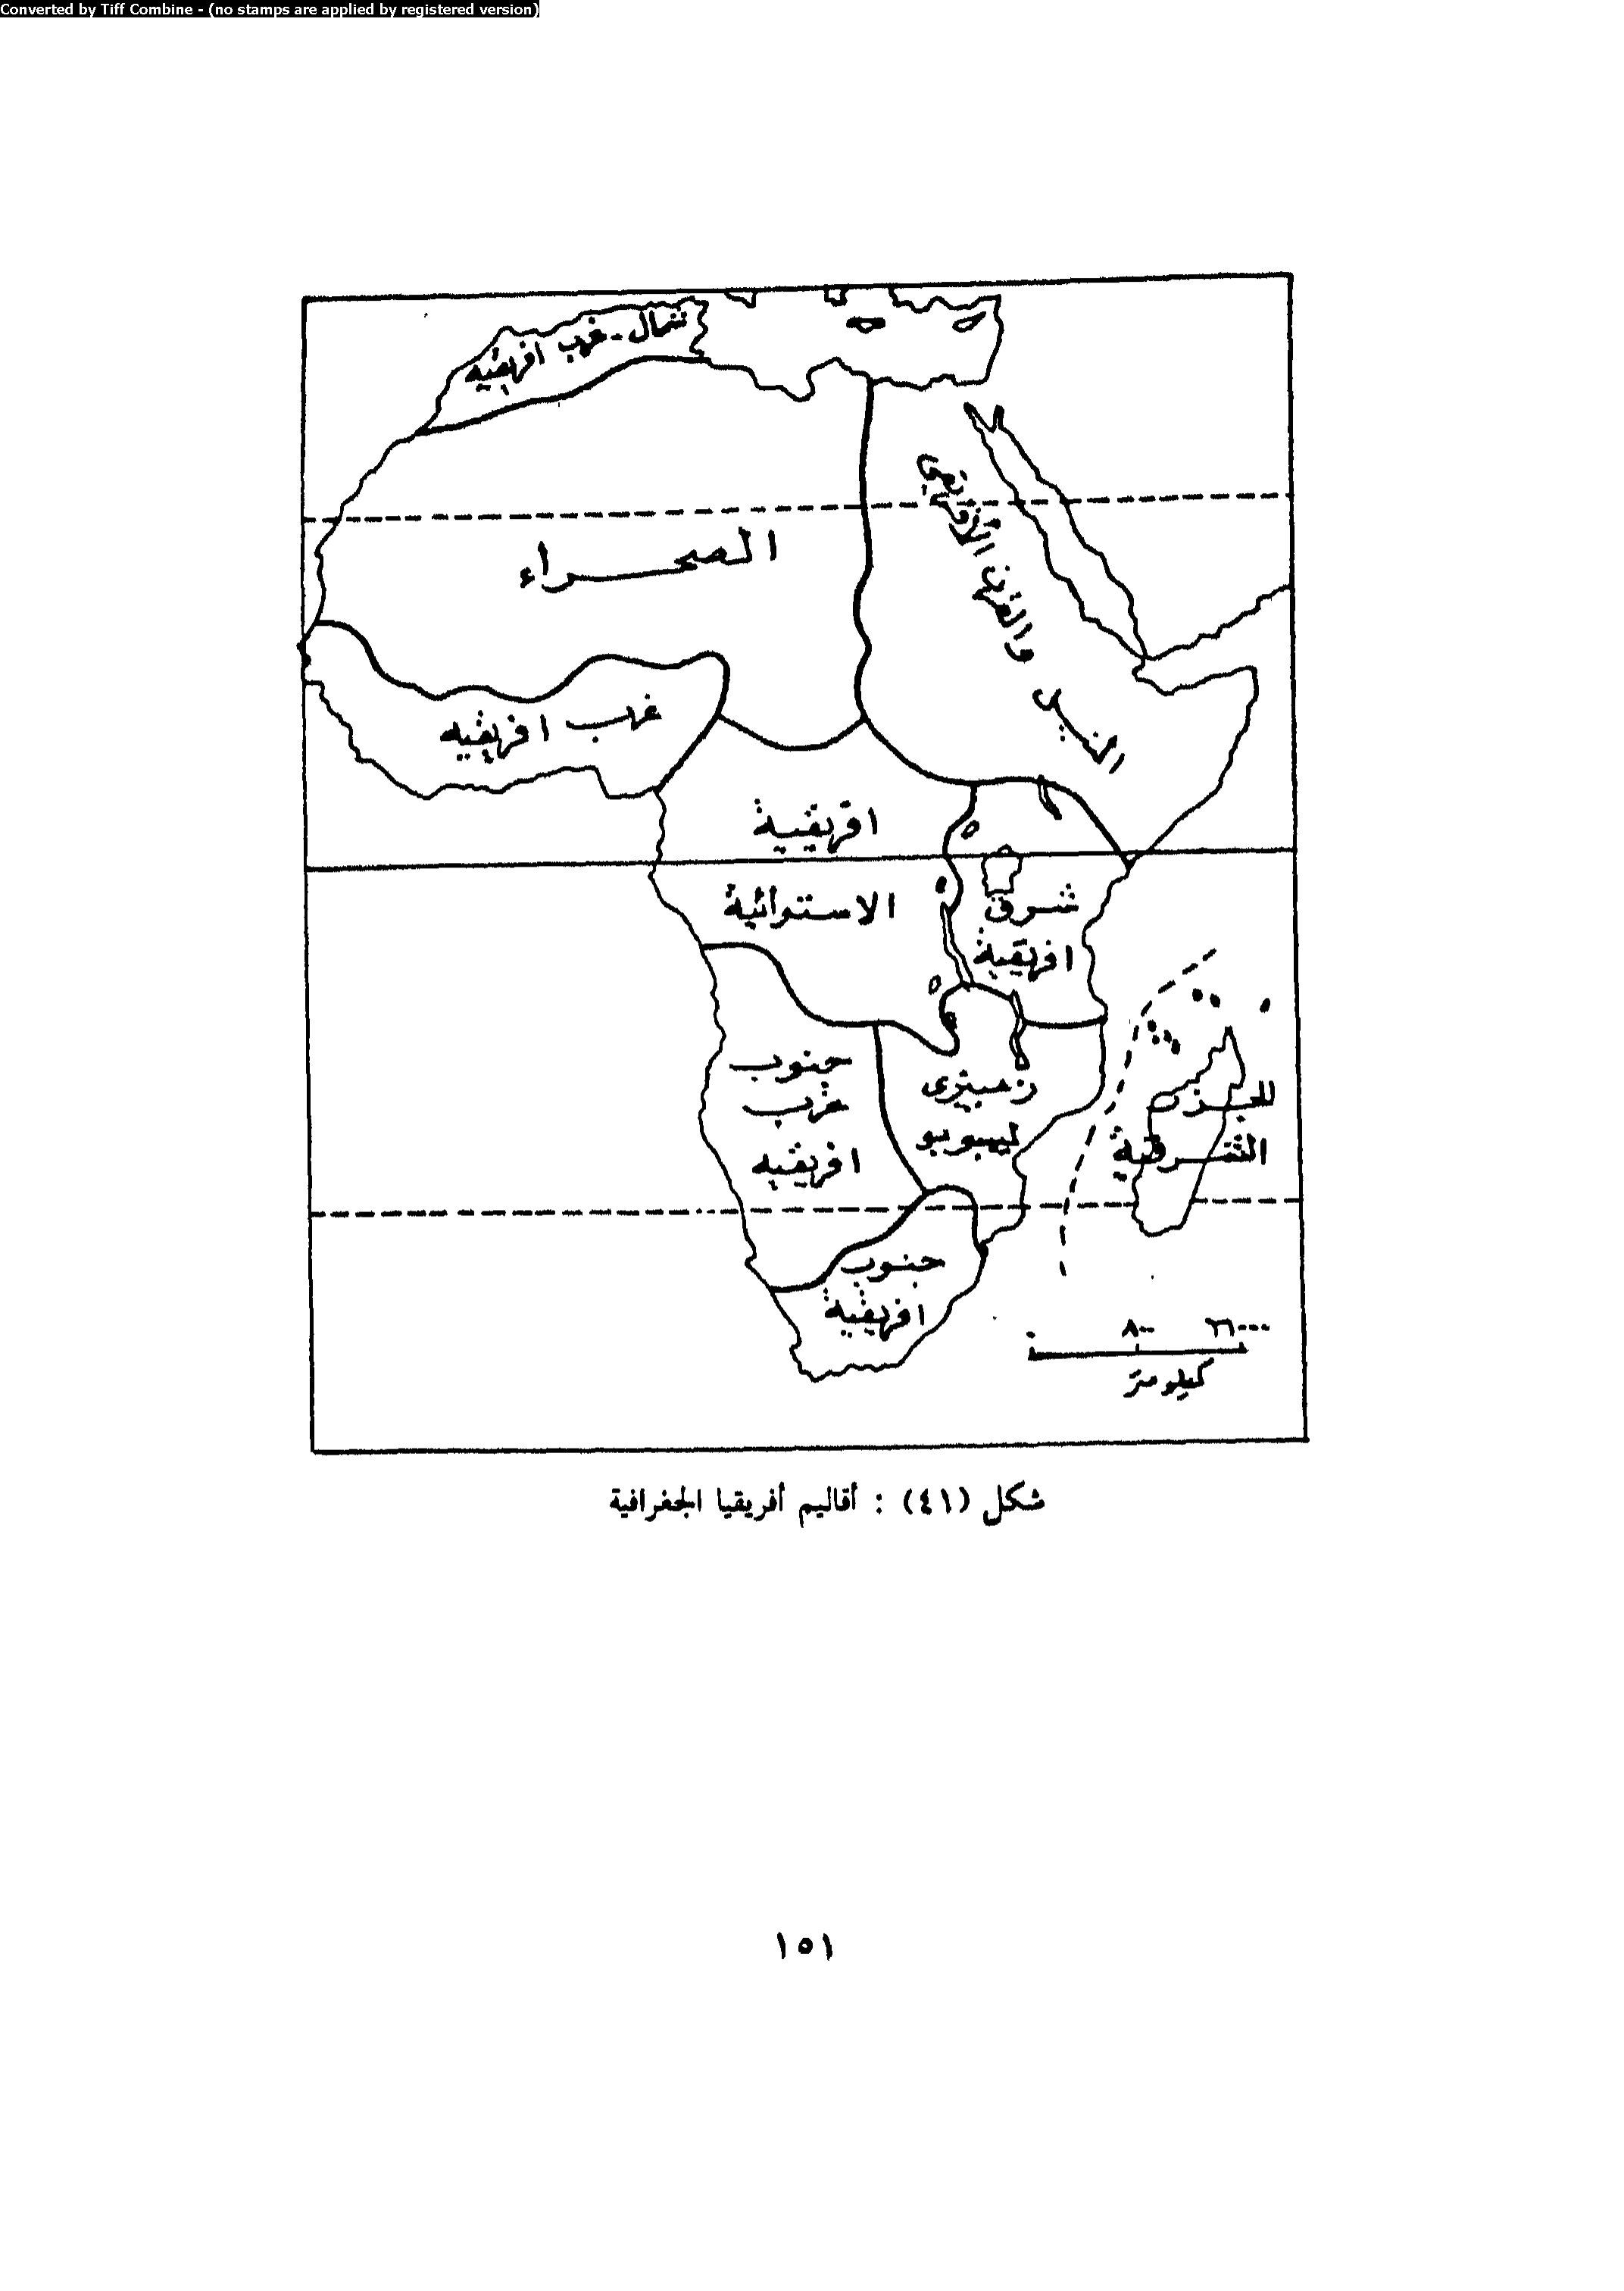 Converted by Tiff Combine - (no stamps are applied by registered version)
شمال - غرب افريقيه
الصحراء
النيل والقرن الأفريقي
غرب افريقيه
افريقية
الاستوائية
شرق
افريقية
جنوب
غرب
افريقيه
زمبيزى
ليمبوبو
الجزر
الشرقية
جنوب
افريقية
٨٠٠
كيلو متر
شكل (٤١) : أقاليم أفريقيا الجغرافية
١٥١